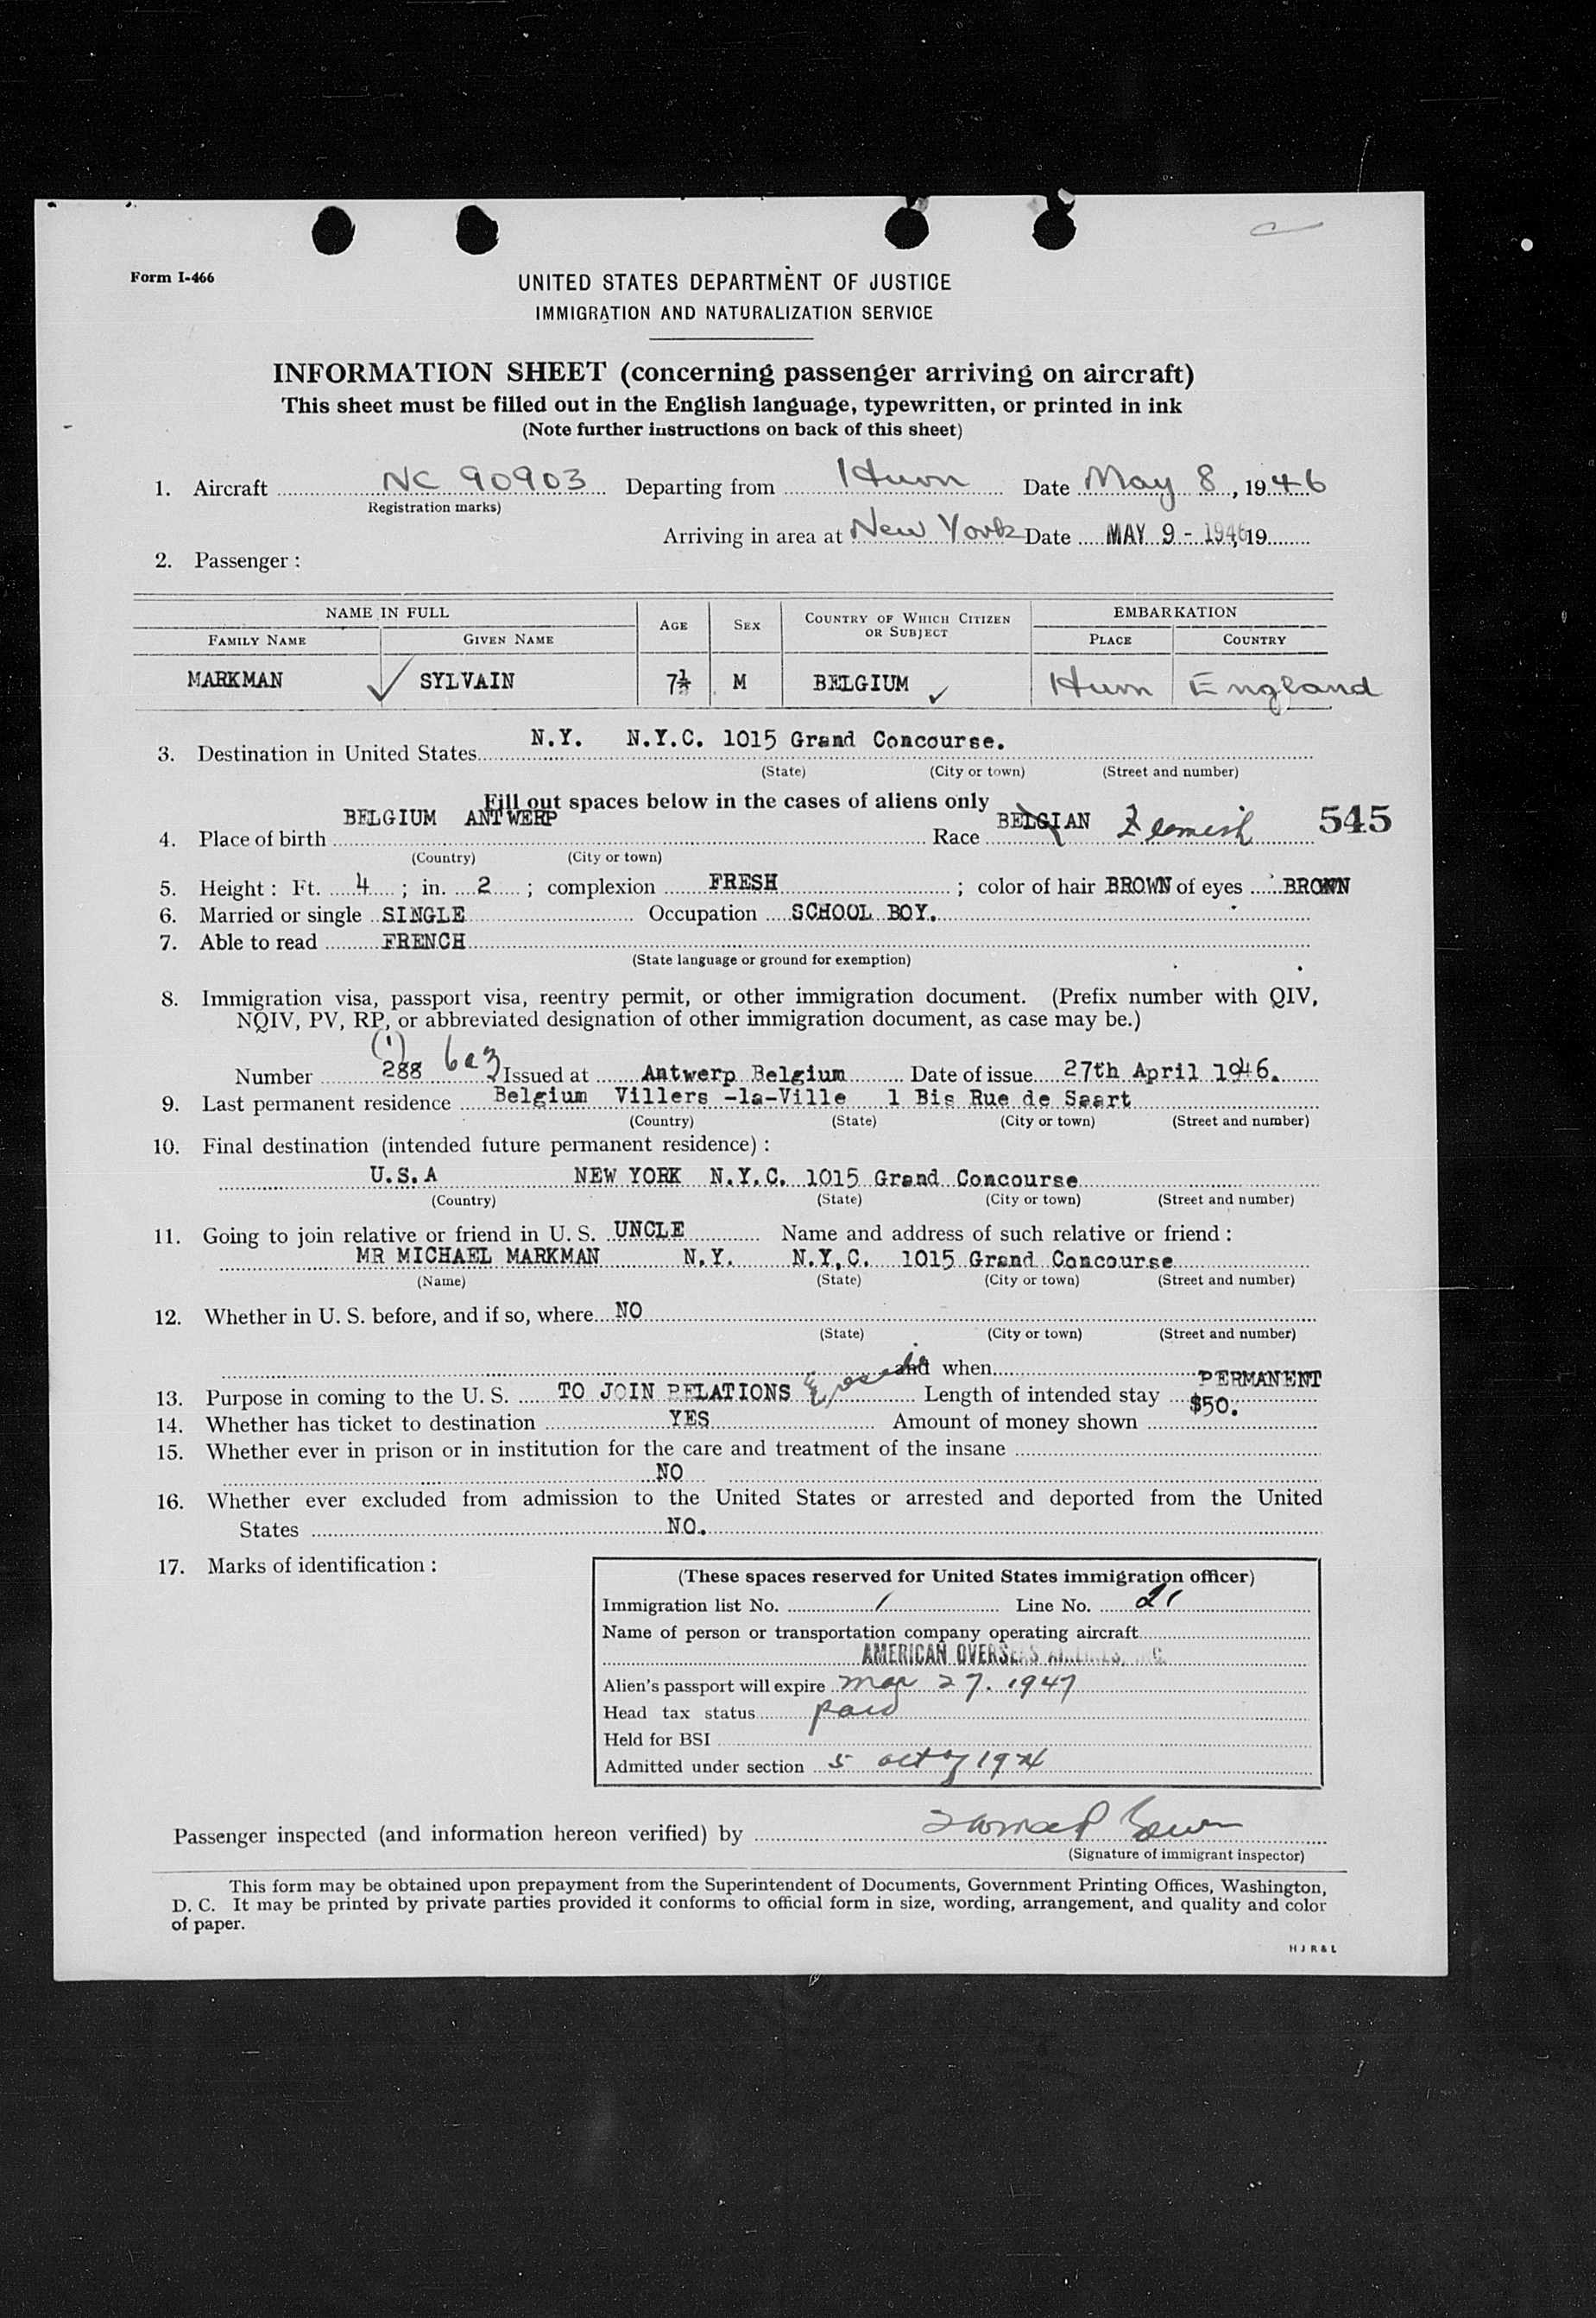 Form I-466
UNITED STATES DEPARTMENT OF JUSTICE
IMMIGRATION AND NATURALIZATION SERVICE
INFORMATION SHEET (concerning passenger arriving on aircraft)
This sheet must be filled out in the English language, typewritten, or printed in ink
(Note further instructions on back of this sheet)
1. Aircraft NC 90903 Departing from Hurn Date May 8, 1946
Registration marks)
Arriving in area at New York Date MAY 9 - 1946, 19
2. Passenger :
NAME IN FULL AGE SEX COUNTRY OF WHICH CITIZEN OR SUBJECT EMBARKATION
FAMILY NAME GIVEN NAME PLACE COUNTRY
MARKMAN SYLVAIN 7½ M BELGIUM Hurn England
3. Destination in United States N.Y. N.Y.C. 1015 Grand Concourse.
(State) (City or town) (Street and number)
Fill out spaces below in the cases of aliens only
4. Place of birth BELGIUM ANTWERP Race BELGIAN Flemish 545
(Country) (City or town)
5. Height : Ft. 4 ; in. 2 ; complexion FRESH ; color of hair BROWN of eyes BROWN
6. Married or single SINGLE Occupation SCHOOL BOY.
7. Able to read FRENCH
(State language or ground for exemption)
8. Immigration visa, passport visa, reentry permit, or other immigration document. (Prefix number with QIV,
NQIV, PV, RP, or abbreviated designation of other immigration document, as case may be.)
(1)
Number 288 6a3 Issued at Antwerp Belgium Date of issue 27th April 1946.
9. Last permanent residence Belgium Villers -la-Ville 1 Bis Rue de Saart
(Country) (State) (City or town) (Street and number)
10. Final destination (intended future permanent residence) :
U.S.A NEW YORK N.Y.C. 1015 Grand Concourse
(Country) (State) (City or town) (Street and number)
11. Going to join relative or friend in U. S. UNCLE Name and address of such relative or friend :
MR MICHAEL MARKMAN N.Y. N.Y.C. 1015 Grand Concourse
(Name) (State) (City or town) (Street and number)
12. Whether in U. S. before, and if so, where NO
(State) (City or town) (Street and number)
and when
13. Purpose in coming to the U. S. TO JOIN RELATIONS & reside Length of intended stay PERMANENT
14. Whether has ticket to destination YES Amount of money shown $50.
15. Whether ever in prison or in institution for the care and treatment of the insane
NO
16. Whether ever excluded from admission to the United States or arrested and deported from the United
States NO.
17. Marks of identification :
(These spaces reserved for United States immigration officer)
Immigration list No. 1 Line No. 21
Name of person or transportation company operating aircraft
AMERICAN OVERSEAS AIRLINES, INC.
Alien's passport will expire Mar 27. 1947
Head tax status paid
Held for BSI
Admitted under section 5 act of 1924
Passenger inspected (and information hereon verified) by
(Signature of immigrant inspector)
This form may be obtained upon prepayment from the Superintendent of Documents, Government Printing Offices, Washington,
D. C. It may be printed by private parties provided it conforms to official form in size, wording, arrangement, and quality and color
of paper.
H J R & L